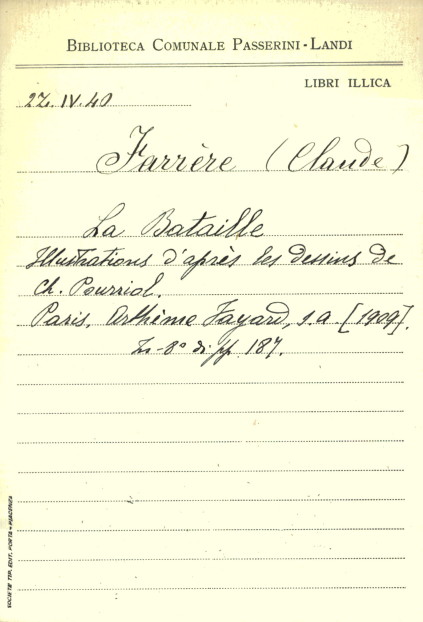 BIBLIOTECA COMUNALE PASSERINI-LANDI
LIBRI ILLICA
22.IV.40
Farrère (Claude)
La Bataille
Illustrations d'après les dessins de
Ch. Pourriol.
Paris, Arthème Fayard, s.a [1909].
In-8° di pp 187.
SOCIETÀ TIP. EDIT. PORTA - PIACENZA